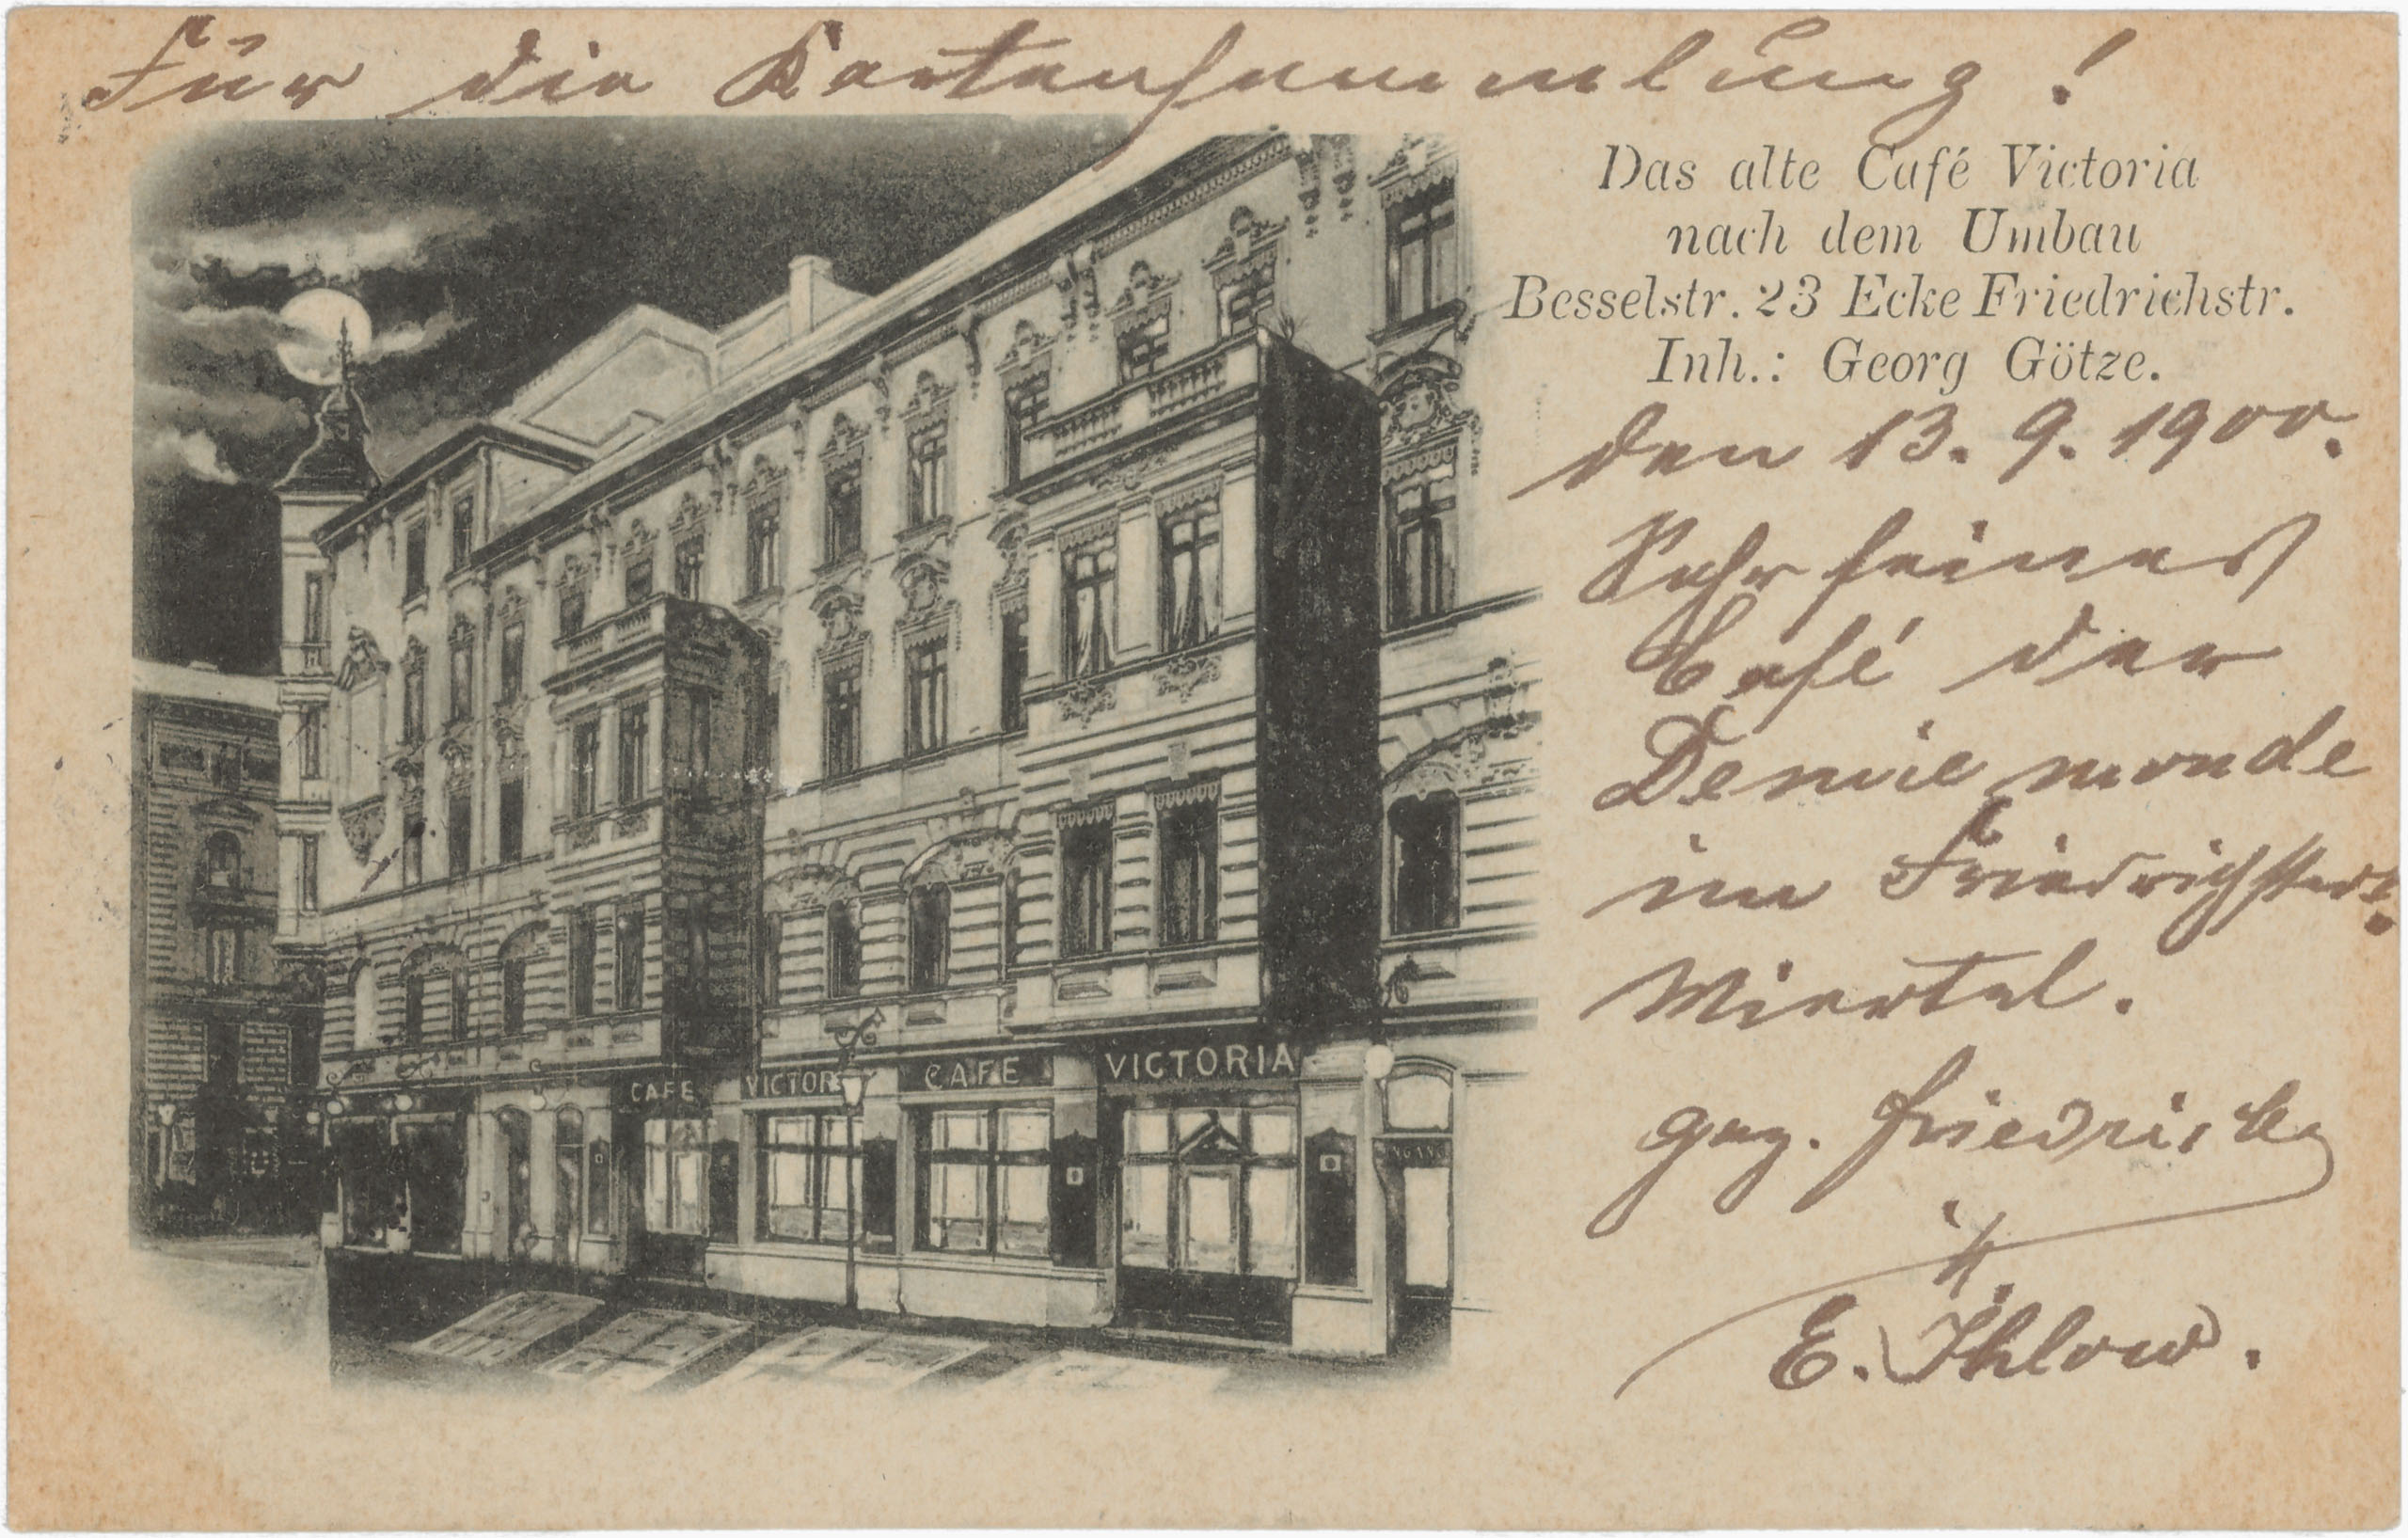 Für die Kartensammlung!
Das alte Café Victoria
nach dem Umbau
Besselstr. 23 Ecke Friedrichstr.
Inh.: Georg Götze.
den 13. 9. 1900.
Sehr feines
Café der
Demie monde
im Friedrichstadt.
Viertel.
gez. Friedrich
E. Ihlow.
CAFE VICTOR CAFE VICTORIA